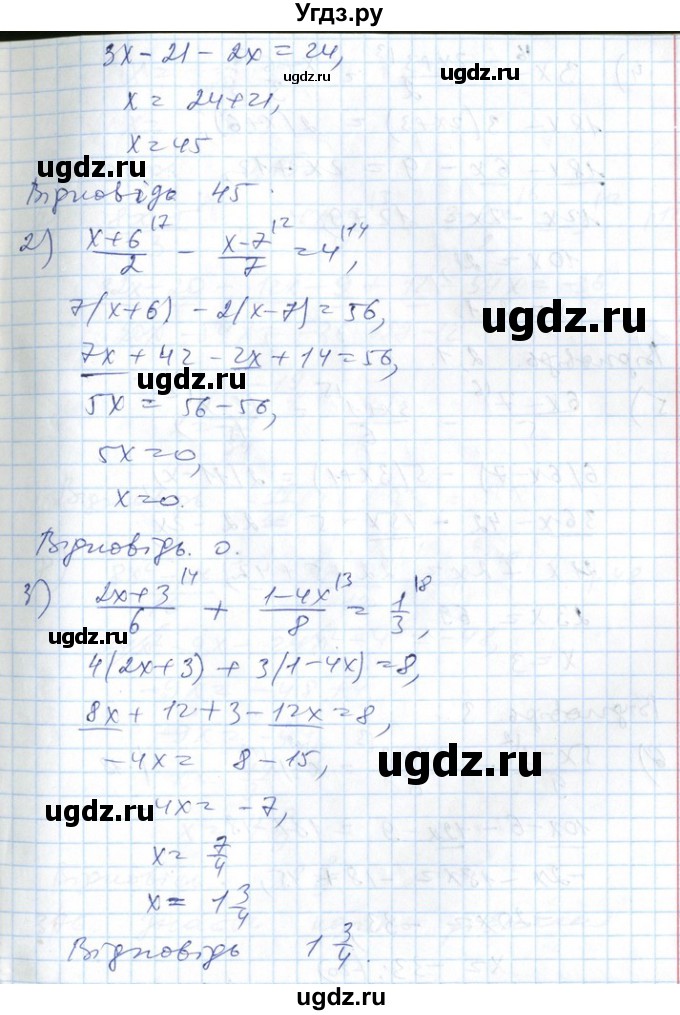 Угдз.ру
3x - 21 - 2x = 24,
ugdz.ru
ugdz.ru
x = 24+21,
x = 45
ugdz.ru
Відповідь 45.
2) (x+6)/2 |7 - (x-7)/7 |2 = 4 |14,
7(x+6) - 2(x-7) = 56,
ugdz.ru
7x + 42 - 2x + 14 = 56,
ugdz.ru
5x = 56 - 56,
5x = 0,
x = 0.
Відповідь. 0.
3) (2x+3)/6 |4 + (1-4x)/8 |3 = 1/3 |8,
ugdz.ru
4(2x+3) + 3(1-4x) = 8,
8x + 12 + 3 - 12x = 8,
-4x = 8 - 15,
ugdz.ru
ugdz.ru
4x = -7,
x = 7/4
x = 1 3/4
Відповідь 1 3/4.
ugdz.ru